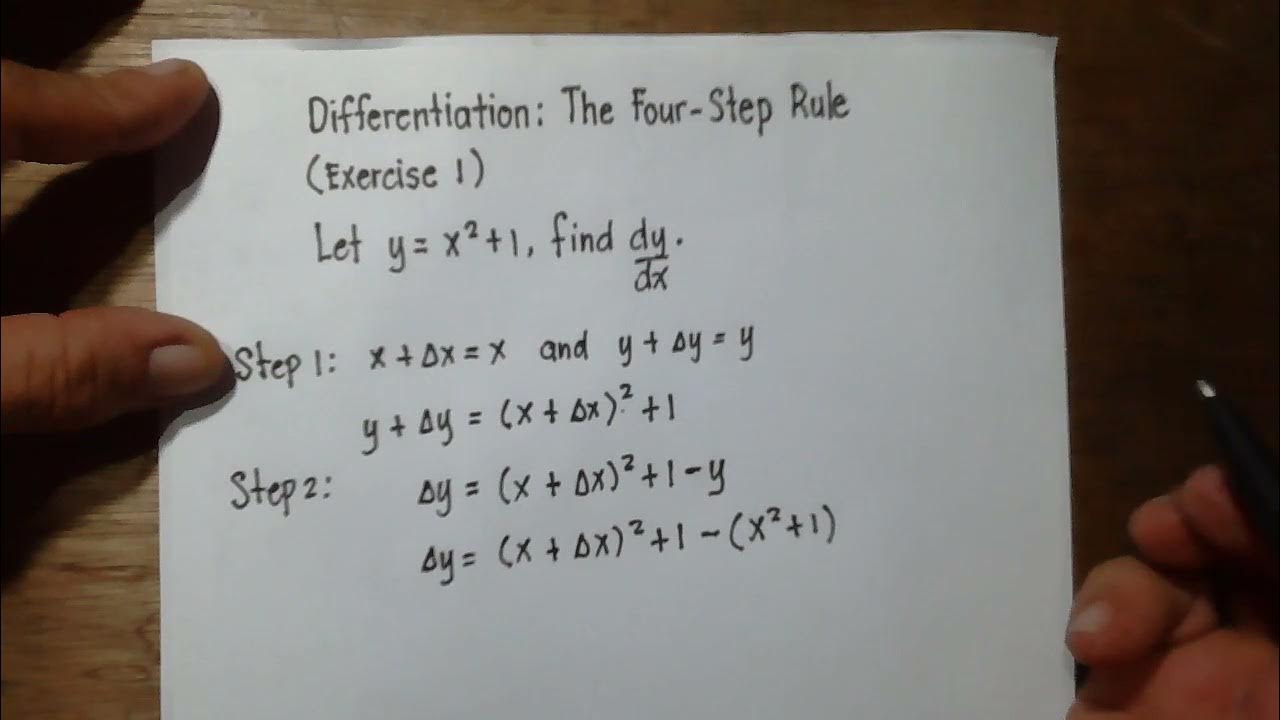 Differentiation: The Four-Step Rule
(Exercise 1)
Let y = x² + 1, find dy/dx.
Step 1: x + Δx = x and y + Δy = y
y + Δy = (x + Δx)² + 1
Step 2: Δy = (x + Δx)² + 1 - y
Δy = (x + Δx)² + 1 - (x² + 1)